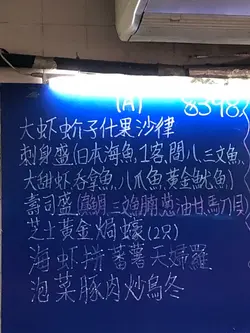 (A) 8398
大虾蚧子什果沙律
刺身盛(日本海魚,1客,間八,三文魚,
大甜虾,吞拿魚,八爪魚,黃金魷魚)
壽司盛(鯛,三文魚腩,油甘,馬刀貝)
芝士黃金焗蠔(2只)
海虾拼蕃薯天婦羅
泡菜豚肉炒烏冬